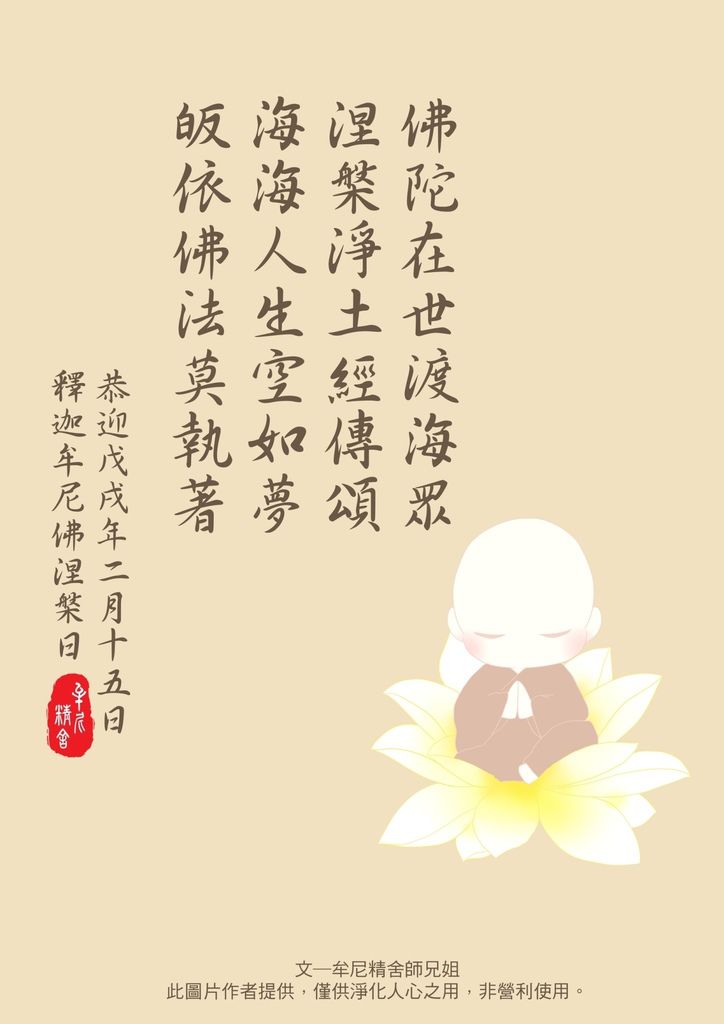 佛陀在世渡海眾
涅槃淨土經傳頌
海海人生空如夢
皈依佛法莫執著
恭迎戊戌年二月十五日
釋迦牟尼佛涅槃日
牟尼
精舍
文─牟尼精舍師兄姐
此圖片作者提供，僅供淨化人心之用，非營利使用。